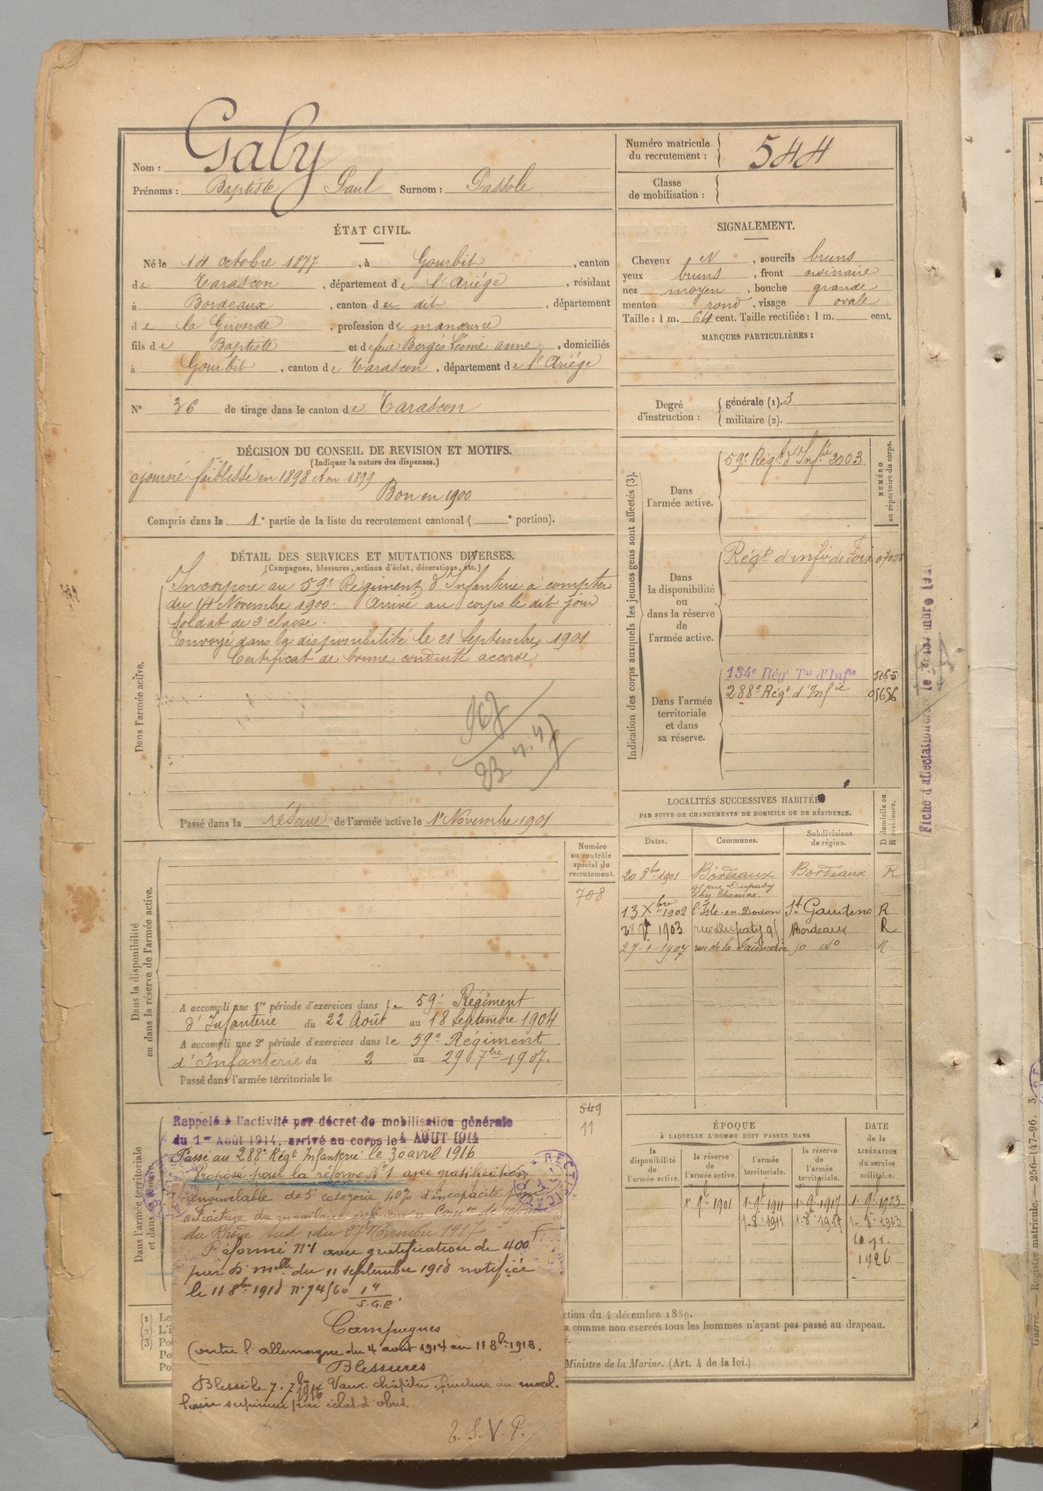 Nom : Galy
Prénoms : Baptiste Paul Surnom : Passole
Numéro matricule du recrutement : 544
Classe de mobilisation :
ÉTAT CIVIL.
Né le 14 octobre 1877, à Gourbit, canton
de Tarascon, département de l'Ariége, résidant
à Bordeaux, canton de dit, département
de la Gironde, profession de manœuvre
fils de Baptiste et de Berges anne, domiciliés
à Gourbit, canton de Tarascon, département de l'Ariége
N° 36 de tirage dans le canton de Tarascon
SIGNALEMENT.
Cheveux N, sourcils bruns
yeux bruns, front ordinaire
nez moyen, bouche grande
menton rond, visage ovale
Taille : 1 m. 64 cent. Taille rectifiée : 1 m. cent.
MARQUES PARTICULIÈRES :
Degré d'instruction : générale (1). 3
militaire (2).
DÉCISION DU CONSEIL DE REVISION ET MOTIFS.
(Indiquer la nature des dispenses.)
ajourné faiblesse en 1898 et en 1899
Bon en 1900
Compris dans la 1e partie de la liste du recrutement cantonal ( e portion).
DÉTAIL DES SERVICES ET MUTATIONS DIVERSES.
(Campagnes, blessures, actions d'éclat, décorations, etc.)
Dans l'armée active.
Incorporé au 59e Régiment d'Infanterie à compter
du 14 Novembre 1900. Arrivé au corps le dit jour
Soldat de 2e classe.
Envoyé dans la disponibilité le 21 Septembre 1901
Certificat de bonne conduite accordé
Passé dans la réserve de l'armée active le 1er Novembre 1901
Indication des corps auxquels les jeunes gens sont affectés (3).
NUMÉRO au répertoire du corps.
Dans l'armée active.
59e Régt d'Infie 2003
Dans la disponibilité ou dans la réserve de l'armée active.
Régt d'infie de Foix
Dans l'armée territoriale et dans sa réserve.
134e Régt Tal d'Infie 5165
288e Régt d'Infie 05656
Fiche d'affectation
LOCALITÉS SUCCESSIVES HABITÉES
PAR SUITE DE CHANGEMENTS DE DOMICILE OU DE RÉSIDENCE.
Dates. Communes. Subdivisions de région. Domicile ou Résidence.
20 8bre 1901 Bordeaux Bordeaux R
rue Dupaty
13 Xbre 1902 l'Isle-en-Dodon St Gaudens R
1903 rue Dupaty 91 Bordeaux R
27-1-1907 rue de la do R
Numéro au contrôle spécial du recrutement.
708
Dans la disponibilité ou dans la réserve de l'armée active.
A accompli une 1re période d'exercices dans le 59e Régiment
d'Infanterie du 22 Août au 18 Septembre 1904
A accompli une 2e période d'exercices dans le 59e Régiment
d'Infanterie du 2 au 29 7bre 1907.
Passé dans l'armée territoriale le
549
11
Dans l'armée territoriale et dans
Rappelé à l'activité par décret de mobilisation générale
du 1er Août 1914, arrivé au corps le 4 AOUT 1914
Passé au 288e Régt Infanterie le 30 avril 1916
Proposé pour la réforme N°1 avec gratification
renouvelable de 5e catégorie 40% d'incapacité pour
Fracture du maxilaire
du Rhône Sud du 1917
Réformé N°1 avec gratification de 400
par D. mlle du 11 septembre 1918 notifiée
le 11 8bre 1918
Campagnes
Contre l'allemagne du 4 août 1914 au 11 8bre 1918.
Blessures
Blessé le 7. 7bre 1916 Vaux chapitre fracture du maxil-
laire supérieur par éclat d'obus.
T. S. V. P.
ÉPOQUE
À LAQUELLE L'HOMME DOIT PASSER DANS
DATE de la LIBÉRATION du service militaire.
la disponibilité de l'armée active. la réserve de l'armée active. l'armée territoriale. la réserve de l'armée territoriale.
1-9-1901 1-9-1911 1-9-1917 1-9-1923
1-8-1911
10 9. 1926
(1) Le
(2) L'i
(3) Po
ction du 4 décembre 1889.
a comme non exercés tous les hommes n'ayant pas passé au drapeau.
Ministre de la Marine. (Art. 4 de la loi.)
Registre matricule. — 256-147-96.